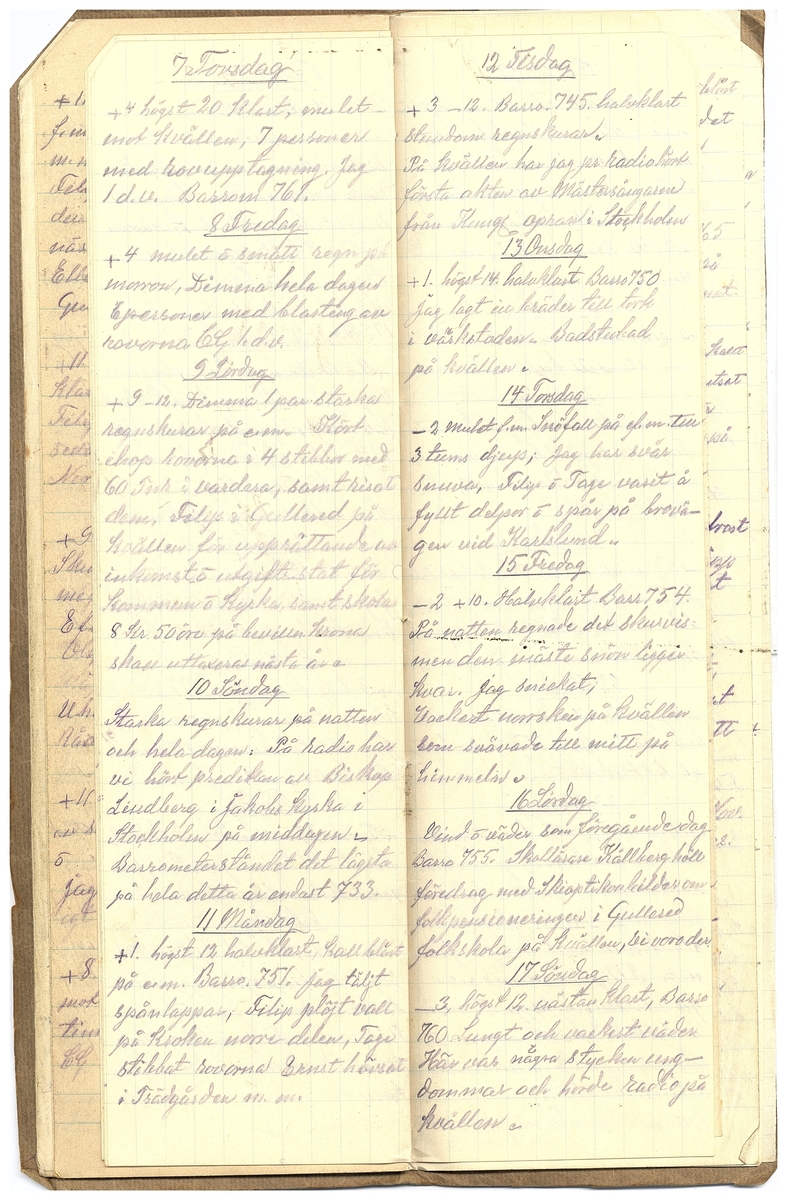 7 Torsdag
+4 högst 20 Klart, mulet
mot Kvällen, 7 personer
med rovupptagning. Jag
1 d.v. Barrom 761.
8 Fredag
+4 mulet o smått regn på
morron, Dimma hela dagen
personer med blastning av
rovorna CG 1 d.v.
9 Lördag
+9 -12. Dimma 1 par starka
regnskurar på e.m. Kört
ehop rovorna i 4 stibbor med
60 Tnr i vardera, samt risat
dem, Filip i Gullered på
Kvällen för upprättande av
inkomst o utgifts stat för
Kommun o Kyrka, samt skola
8 Kr 50 öre på bevilln. Krona
skall uttaxeras nästa år.
10 Söndag
Starka regnskurar på natten
och hela dagen: På radio har
vi hört predikan av Biskop
Lindberg i Jakobs Kyrka i
Stockholm på middagen.
Barrometerståndet det lägsta
på hela detta år endast 733.
11 Måndag
+1. högst 12 halvklart, Kall blåst
på e.m. Barro. 751. jag täljt
spånlappar, Filip plöjt vall
på Kroken norre delen, Tage
stibbat rovorna Ernst
i Trädgården m. m.
12 Tisdag
+3 -12. Barro. 745. halvklart
stundom regnskurar.
På Kvällen har jag pr radio hört
första akten av Mästersångarne
från Kungl. opran i Stockholm
13 Onsdag
+1. högst 14. halvklart. Barro 750
Jag lagt in bräder till tork
i värkstaden. Badstubad
på kvällen.
14 Torsdag
-2 mulet f.m. Snöfall på ef.m. till
3 tums djup; Jag har svår
snuva, Filip o Tage varit å
fyllt delpor o spår på brovä-
gen vid Karlslund.
15 Fredag
-2 +10. Halvklart Barr 754.
På natten regnade det skurvis
men den mäste snön ligger
kvar. Jag snickat,
Vackert norrsken på Kvällen
som svävade till mitt på
himmeln.
16 Lördag
Vind o väder som föregående dag
Barro 755. Skollärare Källberg höll
föredrag med Skioptikonbilder om
folkpensioneringen i Gullered
folkskola på kvällen, vi voro der
17 Söndag
-3, högst 12. nästan Klart, Barro
760 Lungt och vackert väder
Här var några stycken ung-
dommar och hörde radio på
kvällen.